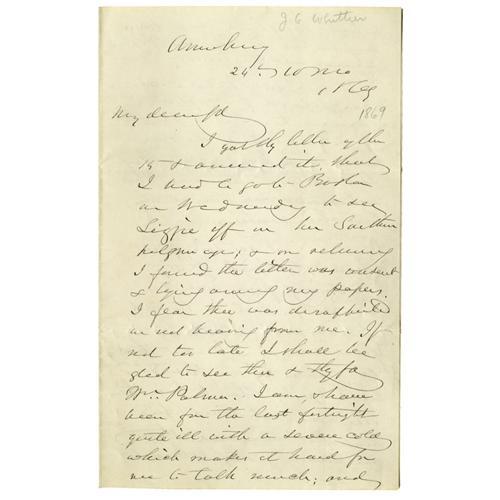 J. G. Whittier
Amesbury
24th 10 mo
1869
1869
My dear fd
I got thy letter of the
15 & answered it, but
I had to go to Boston
on Wednesday to see
Lizzie off on her Southern
pilgrimage; & on returning
I found the letter was unsent
& lying among my papers.
I fear thee was disappointed
in not hearing from me. If
not too late I shall be
glad to see thee & thy fd
Wm. Palmer. I am, & have
been for the last fortnight
quite ill with a severe cold
which makes it hard for
me to talk much; and